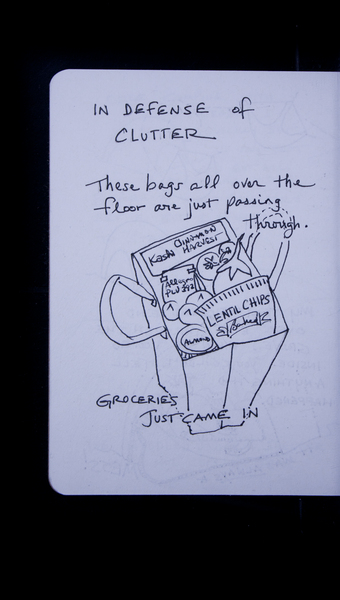 IN DEFENSE of
CLUTTER
These bags all over the
floor are just passing
through.
CINNAMON
HARVEST
Kashi
PLU
LENTIL CHIPS
Baked
ALMOND
GROCERIES
JUST CAME IN